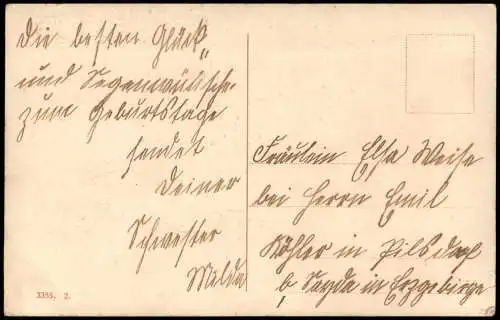 Die besten Glück"
und Segenwünsche
zum Geburtstage
sendet
Deiner
Schwester
Milda
Fräulein Elsa Weise
bei Herrn Emil
Köhler in Pilsdorf
b. Sayda in Erzgebirge
3355. 2.